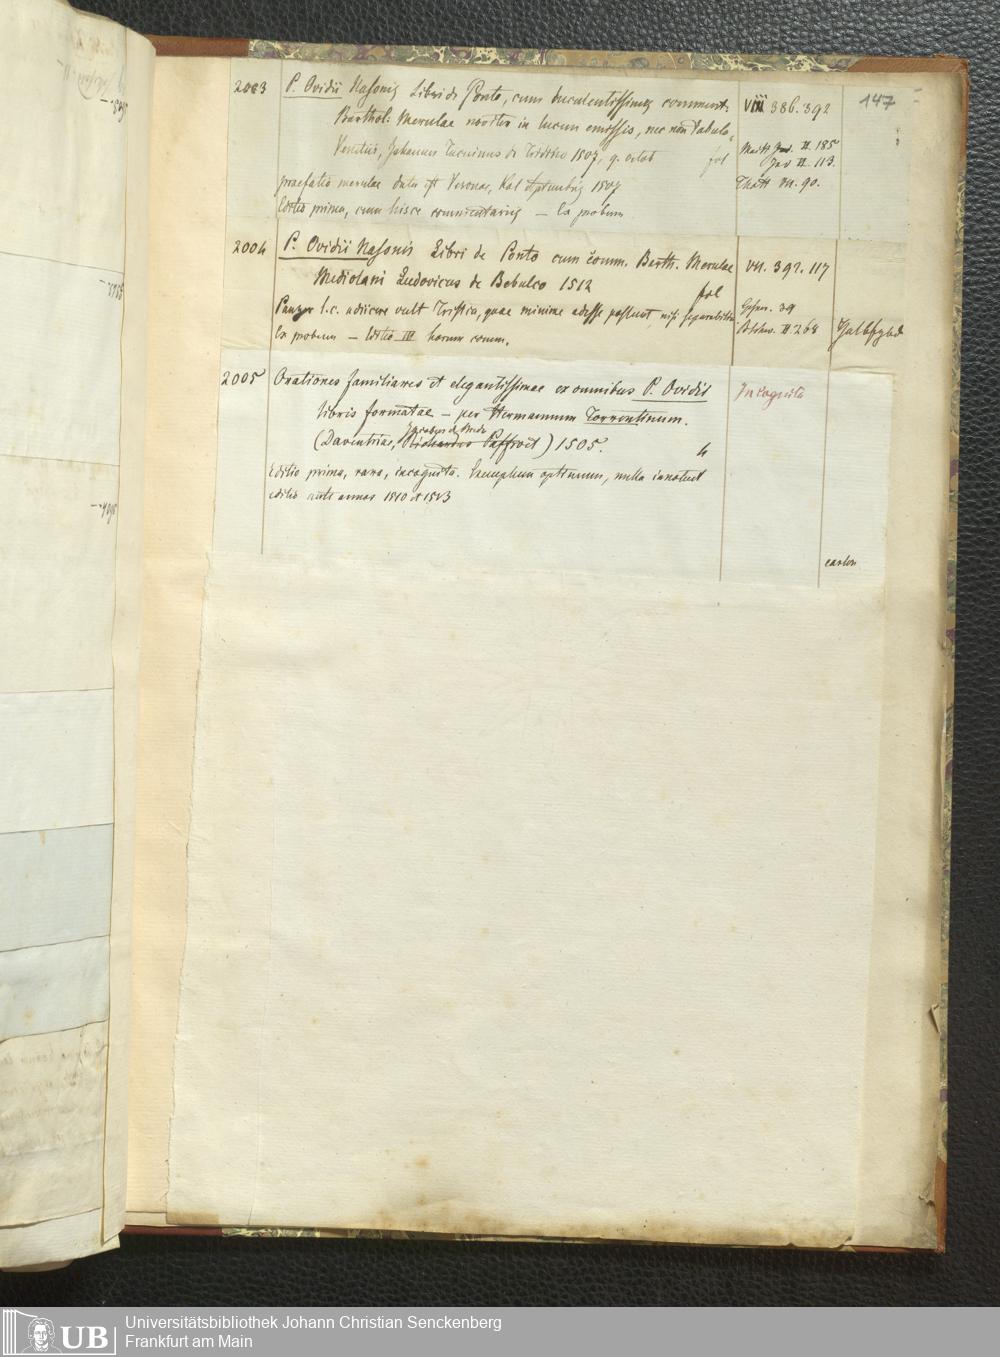 147
2003 P. Ovidii Nasonis Libri de Ponto, cum luculentissimis comment. VIII 386. 392
Barthol: Merulae noviter in lucem emissis, nec non tabula,
Venetiis, Johannes Tacuinus de Tridino 1507, 9. octob fol
Maitt II. 185
II. 113.
Thott VII. 90.
praefatio merulae data est Veronae, Kal Septembris 1507
Editio prima, cum hisce commentariis — Ex probum
2004 P. Ovidii Nasonis Libri de Ponto cum comm. Barth. Merulae VII. 392. 117
Mediolani Ludovicus de Bebulco 1512
fol
Panzer l.c. adiicere vult Tristia, quae minime adesse possunt, nisi separatim
Gesner. 39
Askew. II 268
Halbfzbd
Ex probum — Editio III horum comm.
2005 Orationes familiares et elegantissimae ex omnibus P. Ovidii Incognita
libris formatae — per Hermannum Torrentinum.
Jacobus de Breda
(Daventriae, Richardus Paffroet) 1505. 4
Editio prima, rara, incognita. Exemplum optimum, nulla innotuit
editio ante annos 1510 et 1513
carton
UB Universitätsbibliothek Johann Christian Senckenberg
Frankfurt am Main